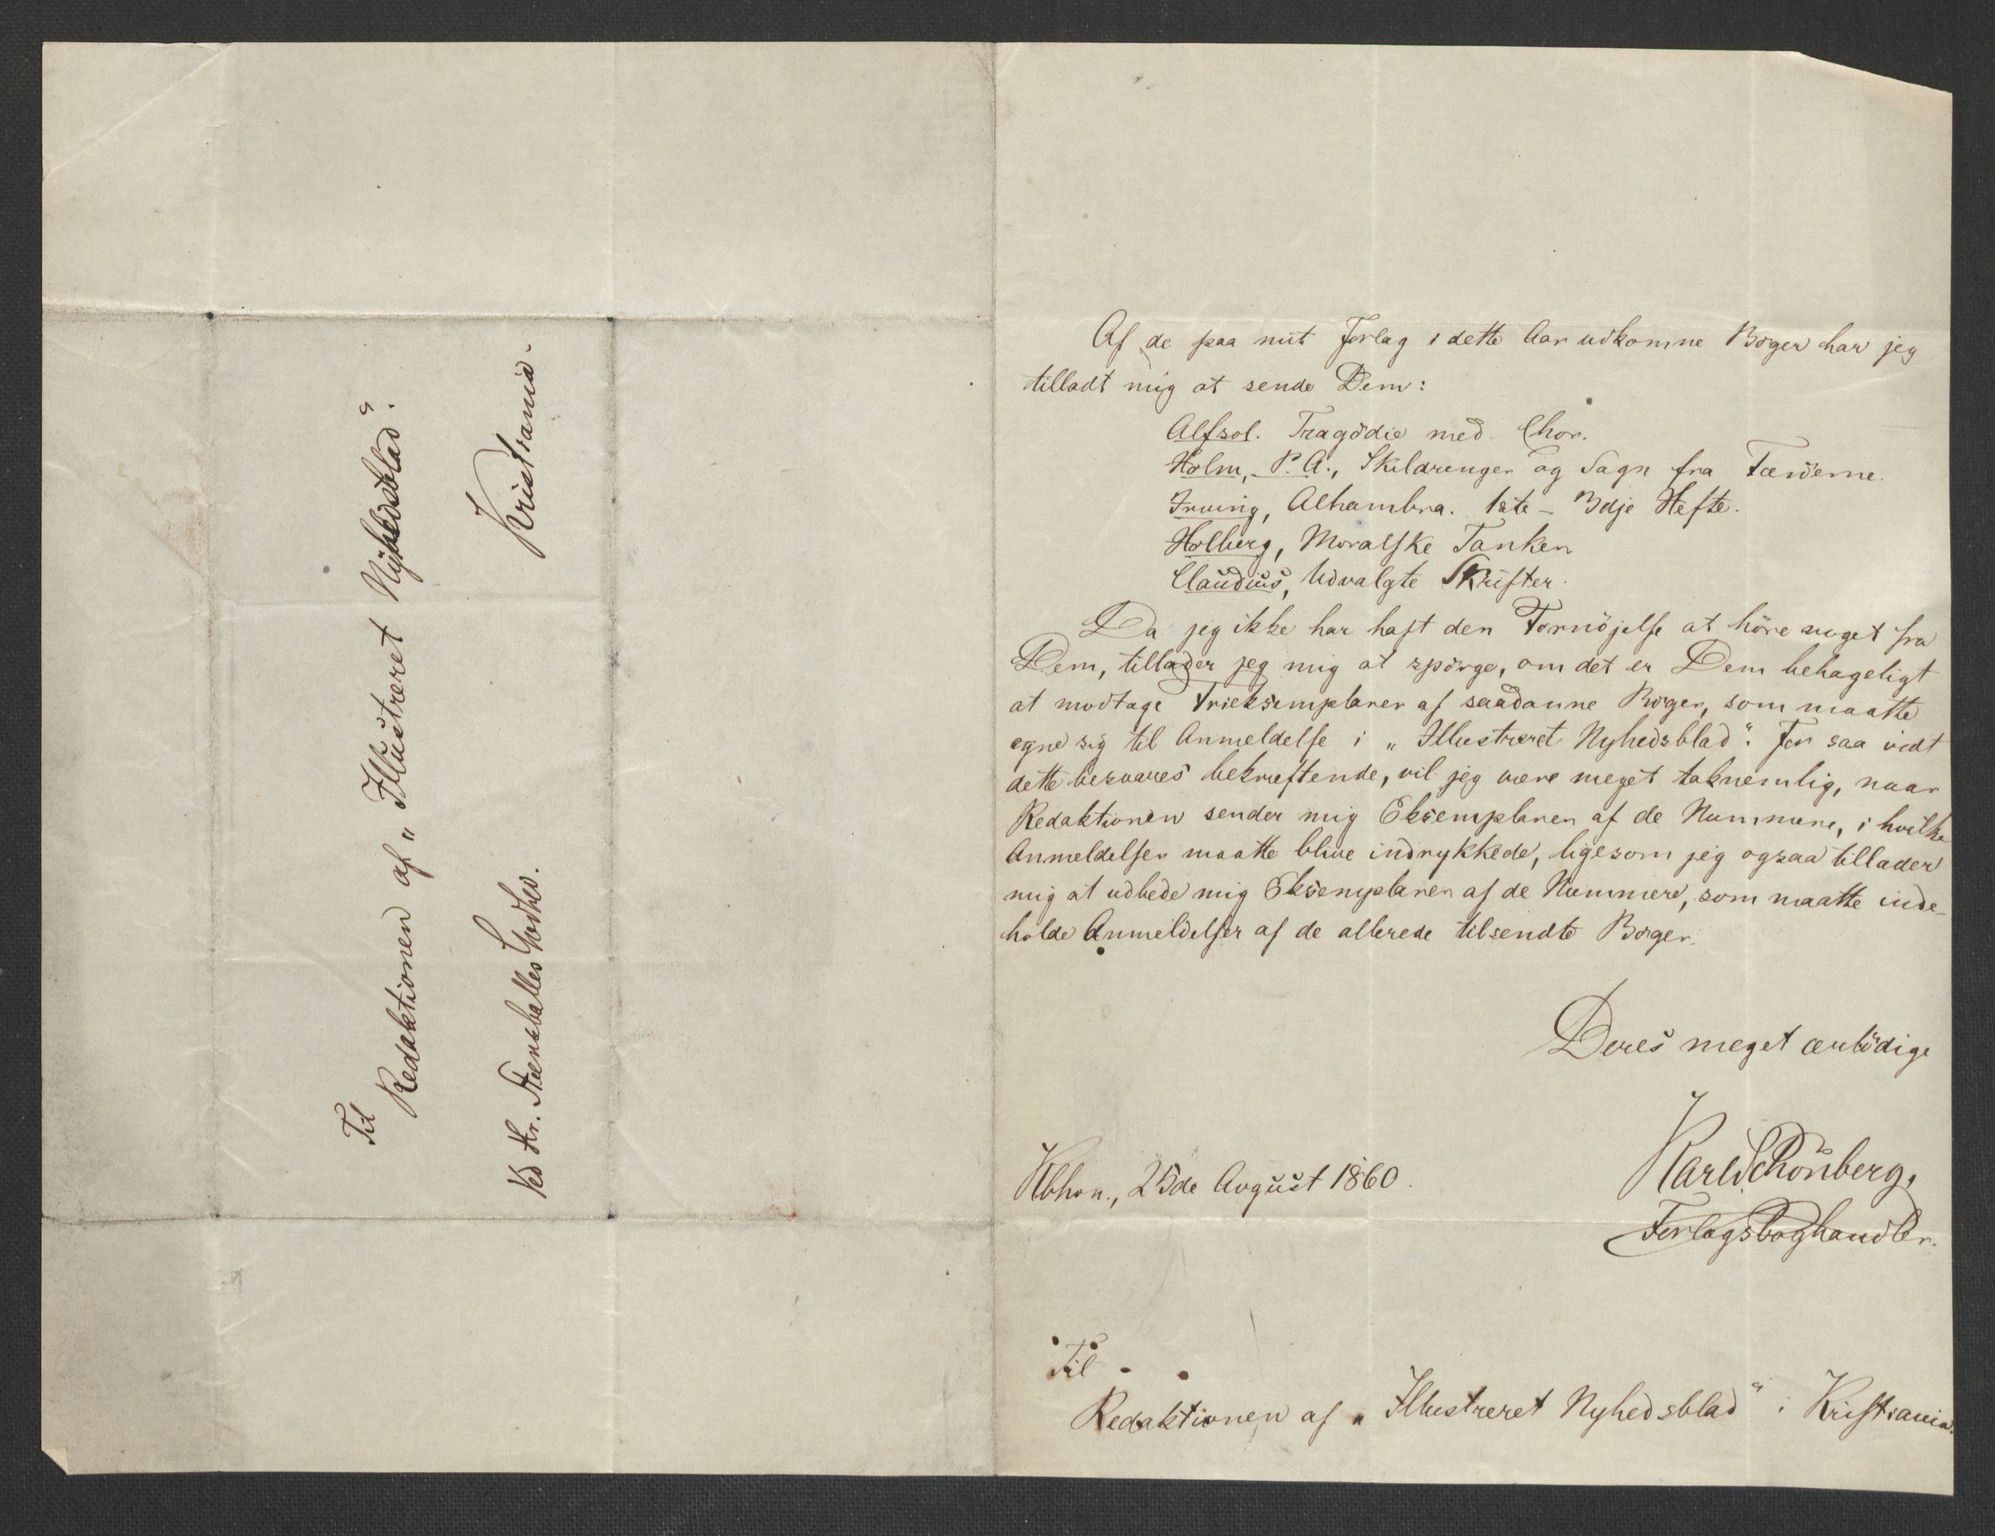 Til
Redaktionen af „Illustreret Nyhedsblad“.
Kristiania.
Hr. Steensballes
Af de paa mit Forlag i dette Aar udkomne Böger har jeg
tilladt mig at sende Dem:
Alfsol. Tragödie med Chor.
Holm, P. A., Skildringer og Sagn fra Færöerne.
Irving, Alhambra. 1ste – 3dje Hefte.
Holberg, Moralske Tanker
Claudius, Udvalgte Skrifter.
Da jeg ikke har haft den Fornöjelse at höre noget fra
Dem, tillader jeg mig at spörge, om det er Dem behageligt
at modtage Frieksemplarer af saadanne Böger, som maatte
egne sig til Anmeldelse i „Illustreret Nyhedsblad“. For saa vidt
dette besvares bekræftende, vil jeg være meget taknemlig, naar
Redaktionen sender mig Eksemplarer af de Nummere, i hvilke
Anmeldelser maatte blive indrykkede, ligesom jeg ogsaa tillader
mig at udbede mig Eksemplarer af de Nummere, som maatte inde-
holde Anmeldelser af de allerede tilsendte Böger.
Deres meget ærbödige
Karl Schönberg,
Forlagsboghandler.
Kbhvn., 25de Avgust 1860.
Til
Redaktionen af „Illustreret Nyhedsblad“ i Kristiania.